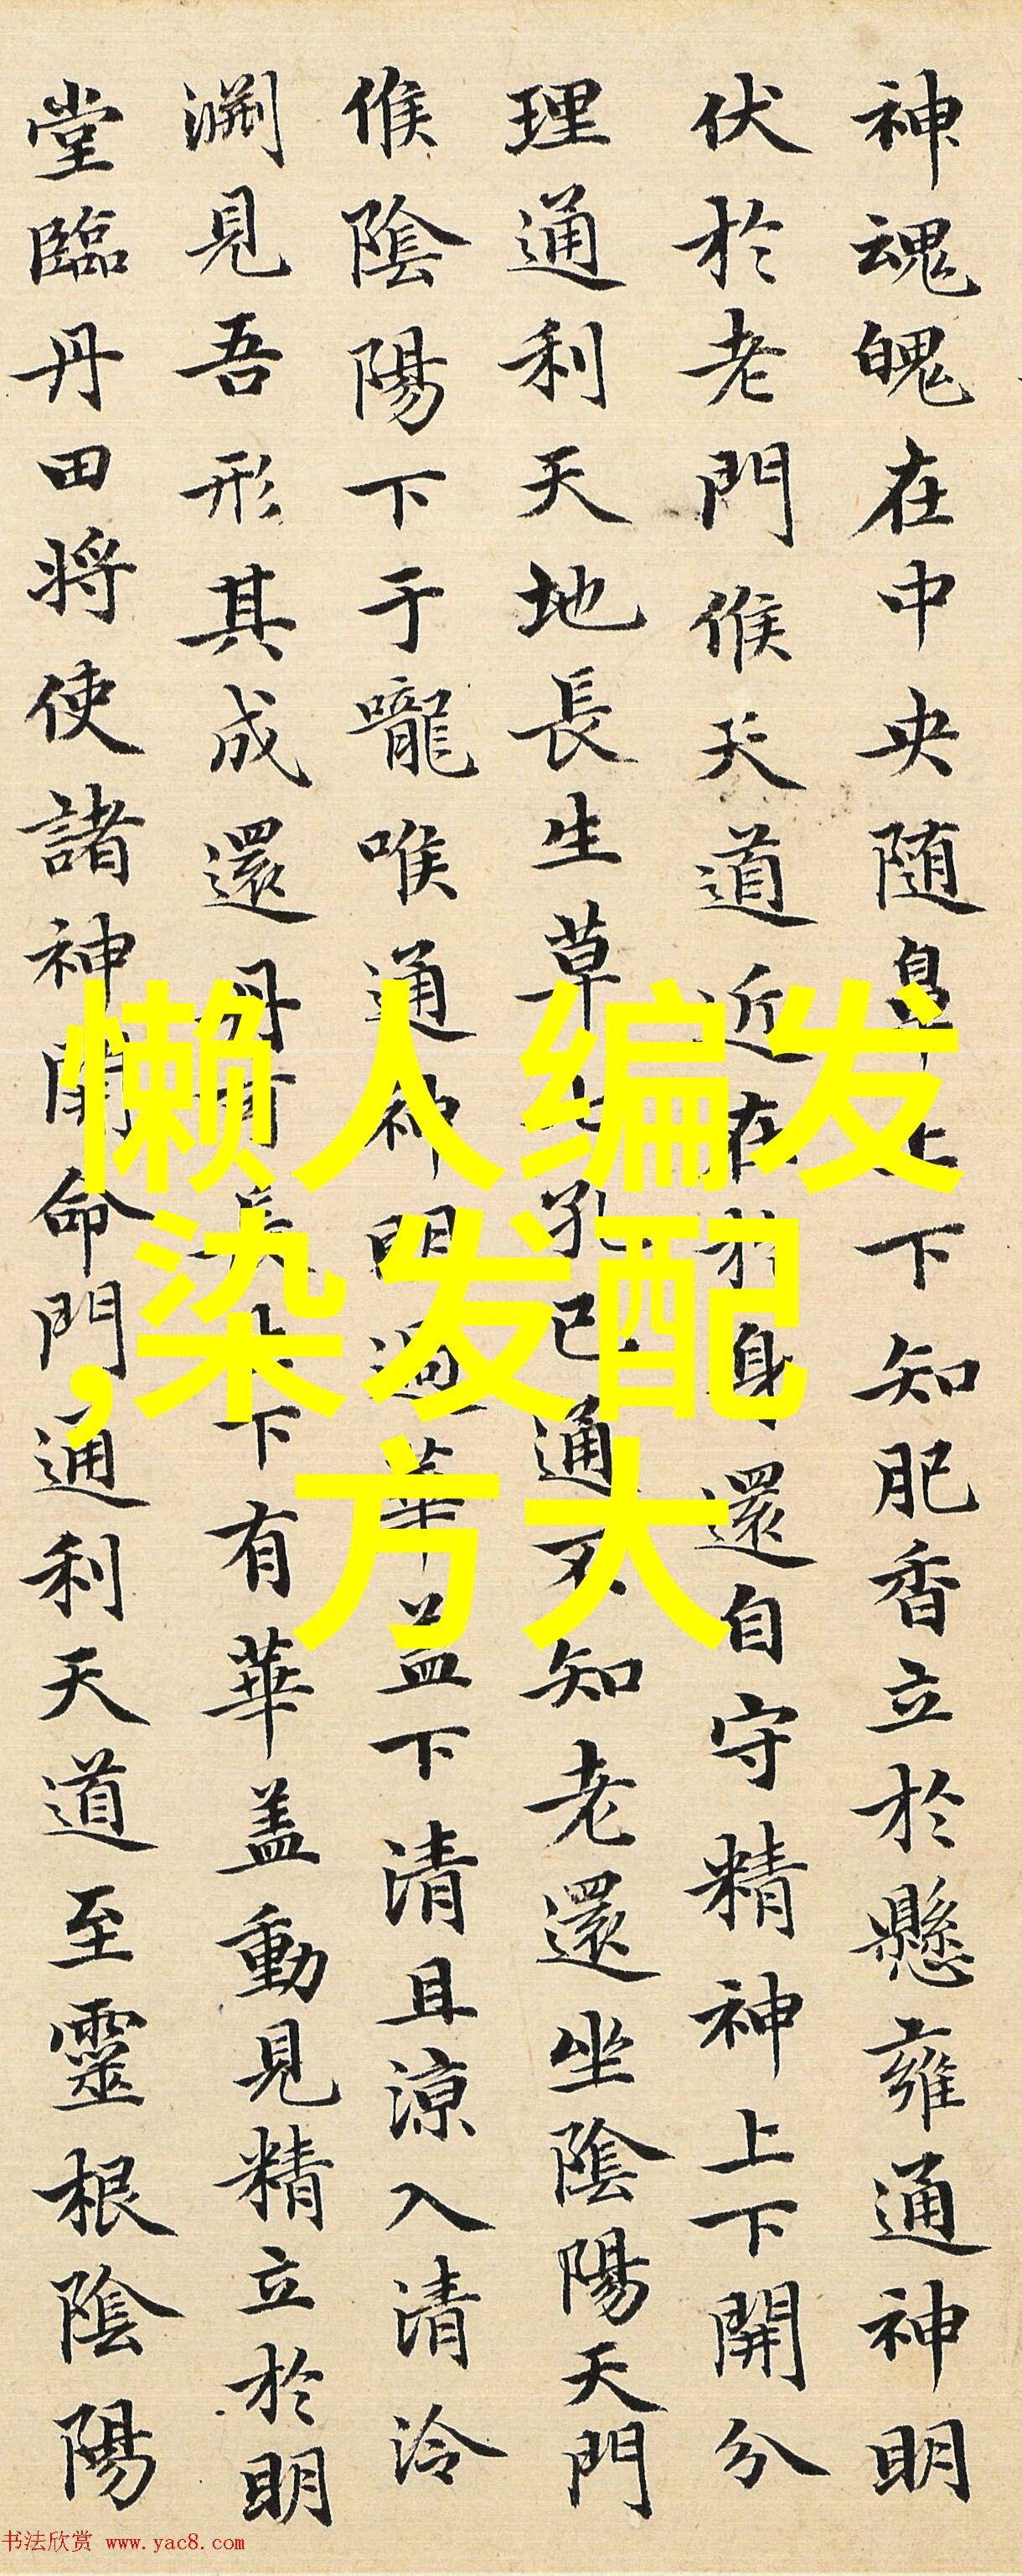 神魂魄在中央随鼻上下知肥香立於懸雍通神明
伏於老門候天道近在於身還自守精神上下開分
理通利天地長生草七孔已通不知老還坐陰陽天門
候陰陽下于嚨喉通神明過華蓋下清且涼入清泠
淵見吾形其成還丹可長生下有華盖動見精立於明
堂臨丹田将使諸神開命門通利天道至靈根陰陽
懒人编发
,染发配
方大
书法欣赏 www.yac8.com